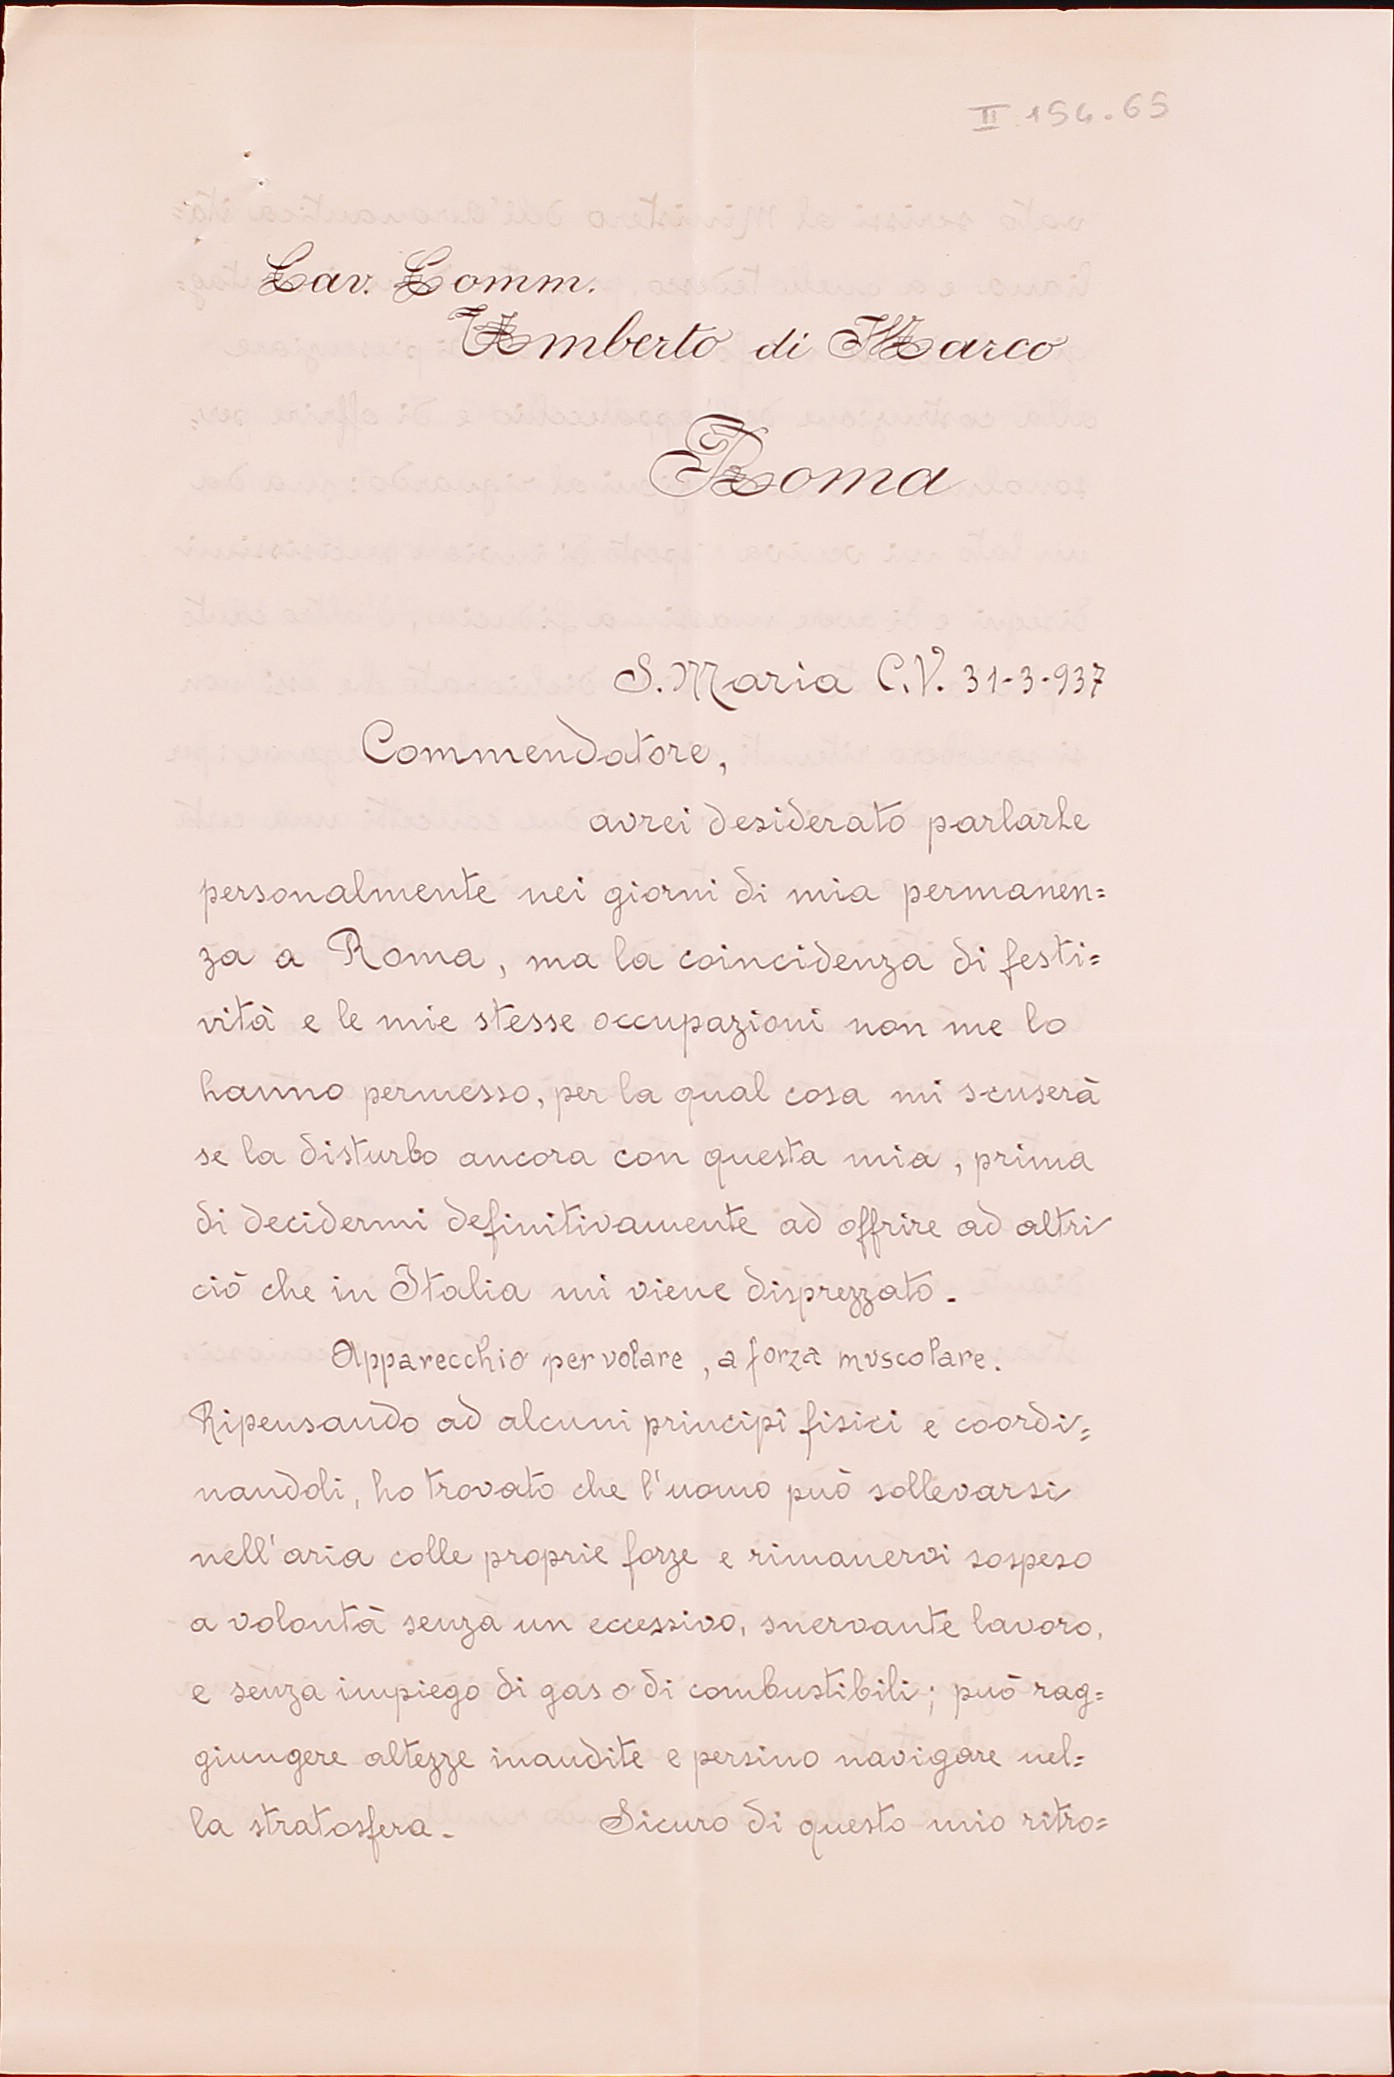 II 154.65
Cav. Comm.
Umberto di Marco
Roma
S. Maria C.V. 31-3-937
Commendatore,
avrei desiderato parlarLe
personalmente nei giorni di mia permanen=
za a Roma, ma la coincidenza di festi=
vità e le mie stesse occupazioni non me lo
hanno permesso, per la qual cosa mi scuserà
se la disturbo ancora con questa mia, prima
di decidermi definitivamente ad offrire ad altri
ciò che in Italia mi viene disprezzato.
Apparecchio per volare, a forza muscolare.
Ripensando ad alcuni principî fisici e coordi=
nandoli, ho trovato che l'uomo può sollevarsi
nell'aria colle proprie forze e rimanervi sospeso
a volontà senza un eccessivo, snervante lavoro,
e senza impiego di gas o di combustibili; può rag=
giungere altezze inaudite e persino navigare nel=
la stratosfera. Sicuro di questo mio ritro=